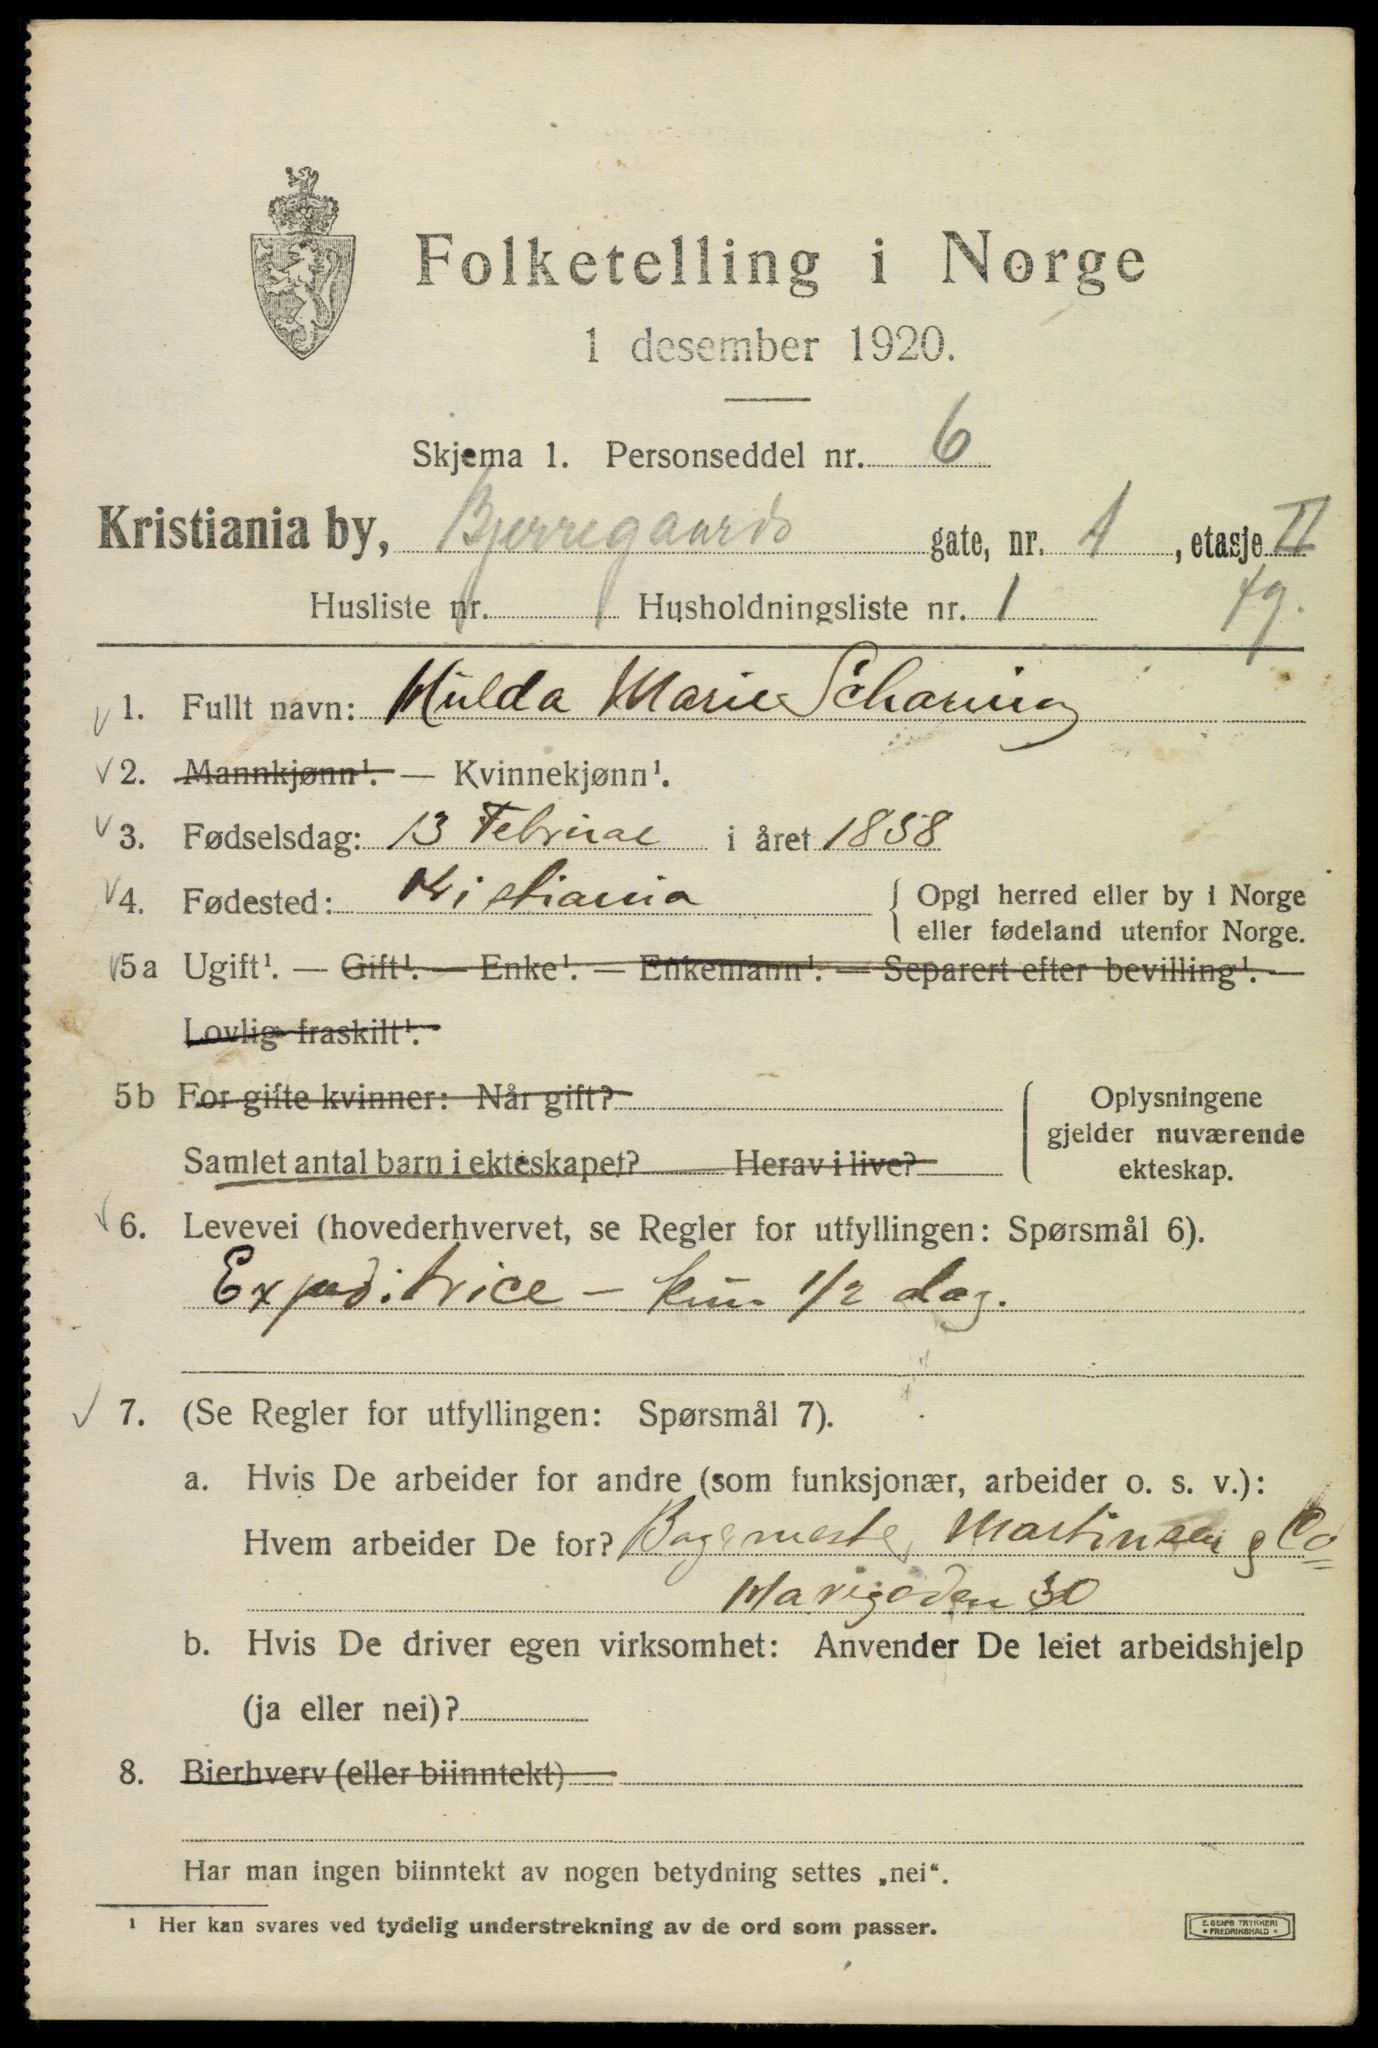 Folketelling i Norge
1 desember 1920.
Skjema 1. Personseddel nr. 6
Kristiania by, Bjerregaards gate, nr. 1, etasje II
Husliste nr. 1 Husholdningsliste nr. 1 tg.
1. Fullt navn: Hulda Marie Scharning
2. Mannkjønn¹. — Kvinnekjønn¹.
3. Fødselsdag: 13 Februar i året 1858
4. Fødested: Kristiania { Opgi herred eller by i Norge
eller fødeland utenfor Norge.
5a Ugift¹. — Gift¹. — Enke¹. — Enkemann¹. — Separert efter bevilling¹. —
Lovlig fraskilt¹.
5b For gifte kvinner: Når gift? { Oplysningene
gjelder nuværende
Samlet antal barn i ekteskapet? Herav i live?
ekteskap.
6. Levevei (hovederhvervet, se Regler for utfyllingen: Spørsmål 6).
Expeditrice – kun 1/2 dag.
7. (Se Regler for utfyllingen: Spørsmål 7).
a. Hvis De arbeider for andre (som funksjonær, arbeider o. s. v.):
Hvem arbeider De for? Bagermester Martinsen & Co
Marigaden 30
b. Hvis De driver egen virksomhet: Anvender De leiet arbeidshjelp
(ja eller nei)?
8. Bierhverv (eller biinntekt)
Har man ingen biinntekt av nogen betydning settes „nei“.
¹ Her kan svares ved tydelig understrekning av de ord som passer.
E. SEM'S TRYKKERI
• FREDRIKSHALD •